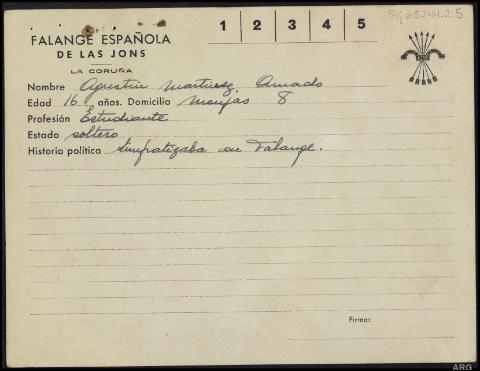 1 2 3 4 5
Sig 65244.2.5
FALANGE ESPAÑOLA
DE LAS JONS
LA CORUÑA
Nombre Agustin Martinez, Amado
Edad 16 años. Domicilio Monjas 8
Profesión Estudiante
Estado soltero
Historia política Simpatizaba con Falange.
Firma:
ARG